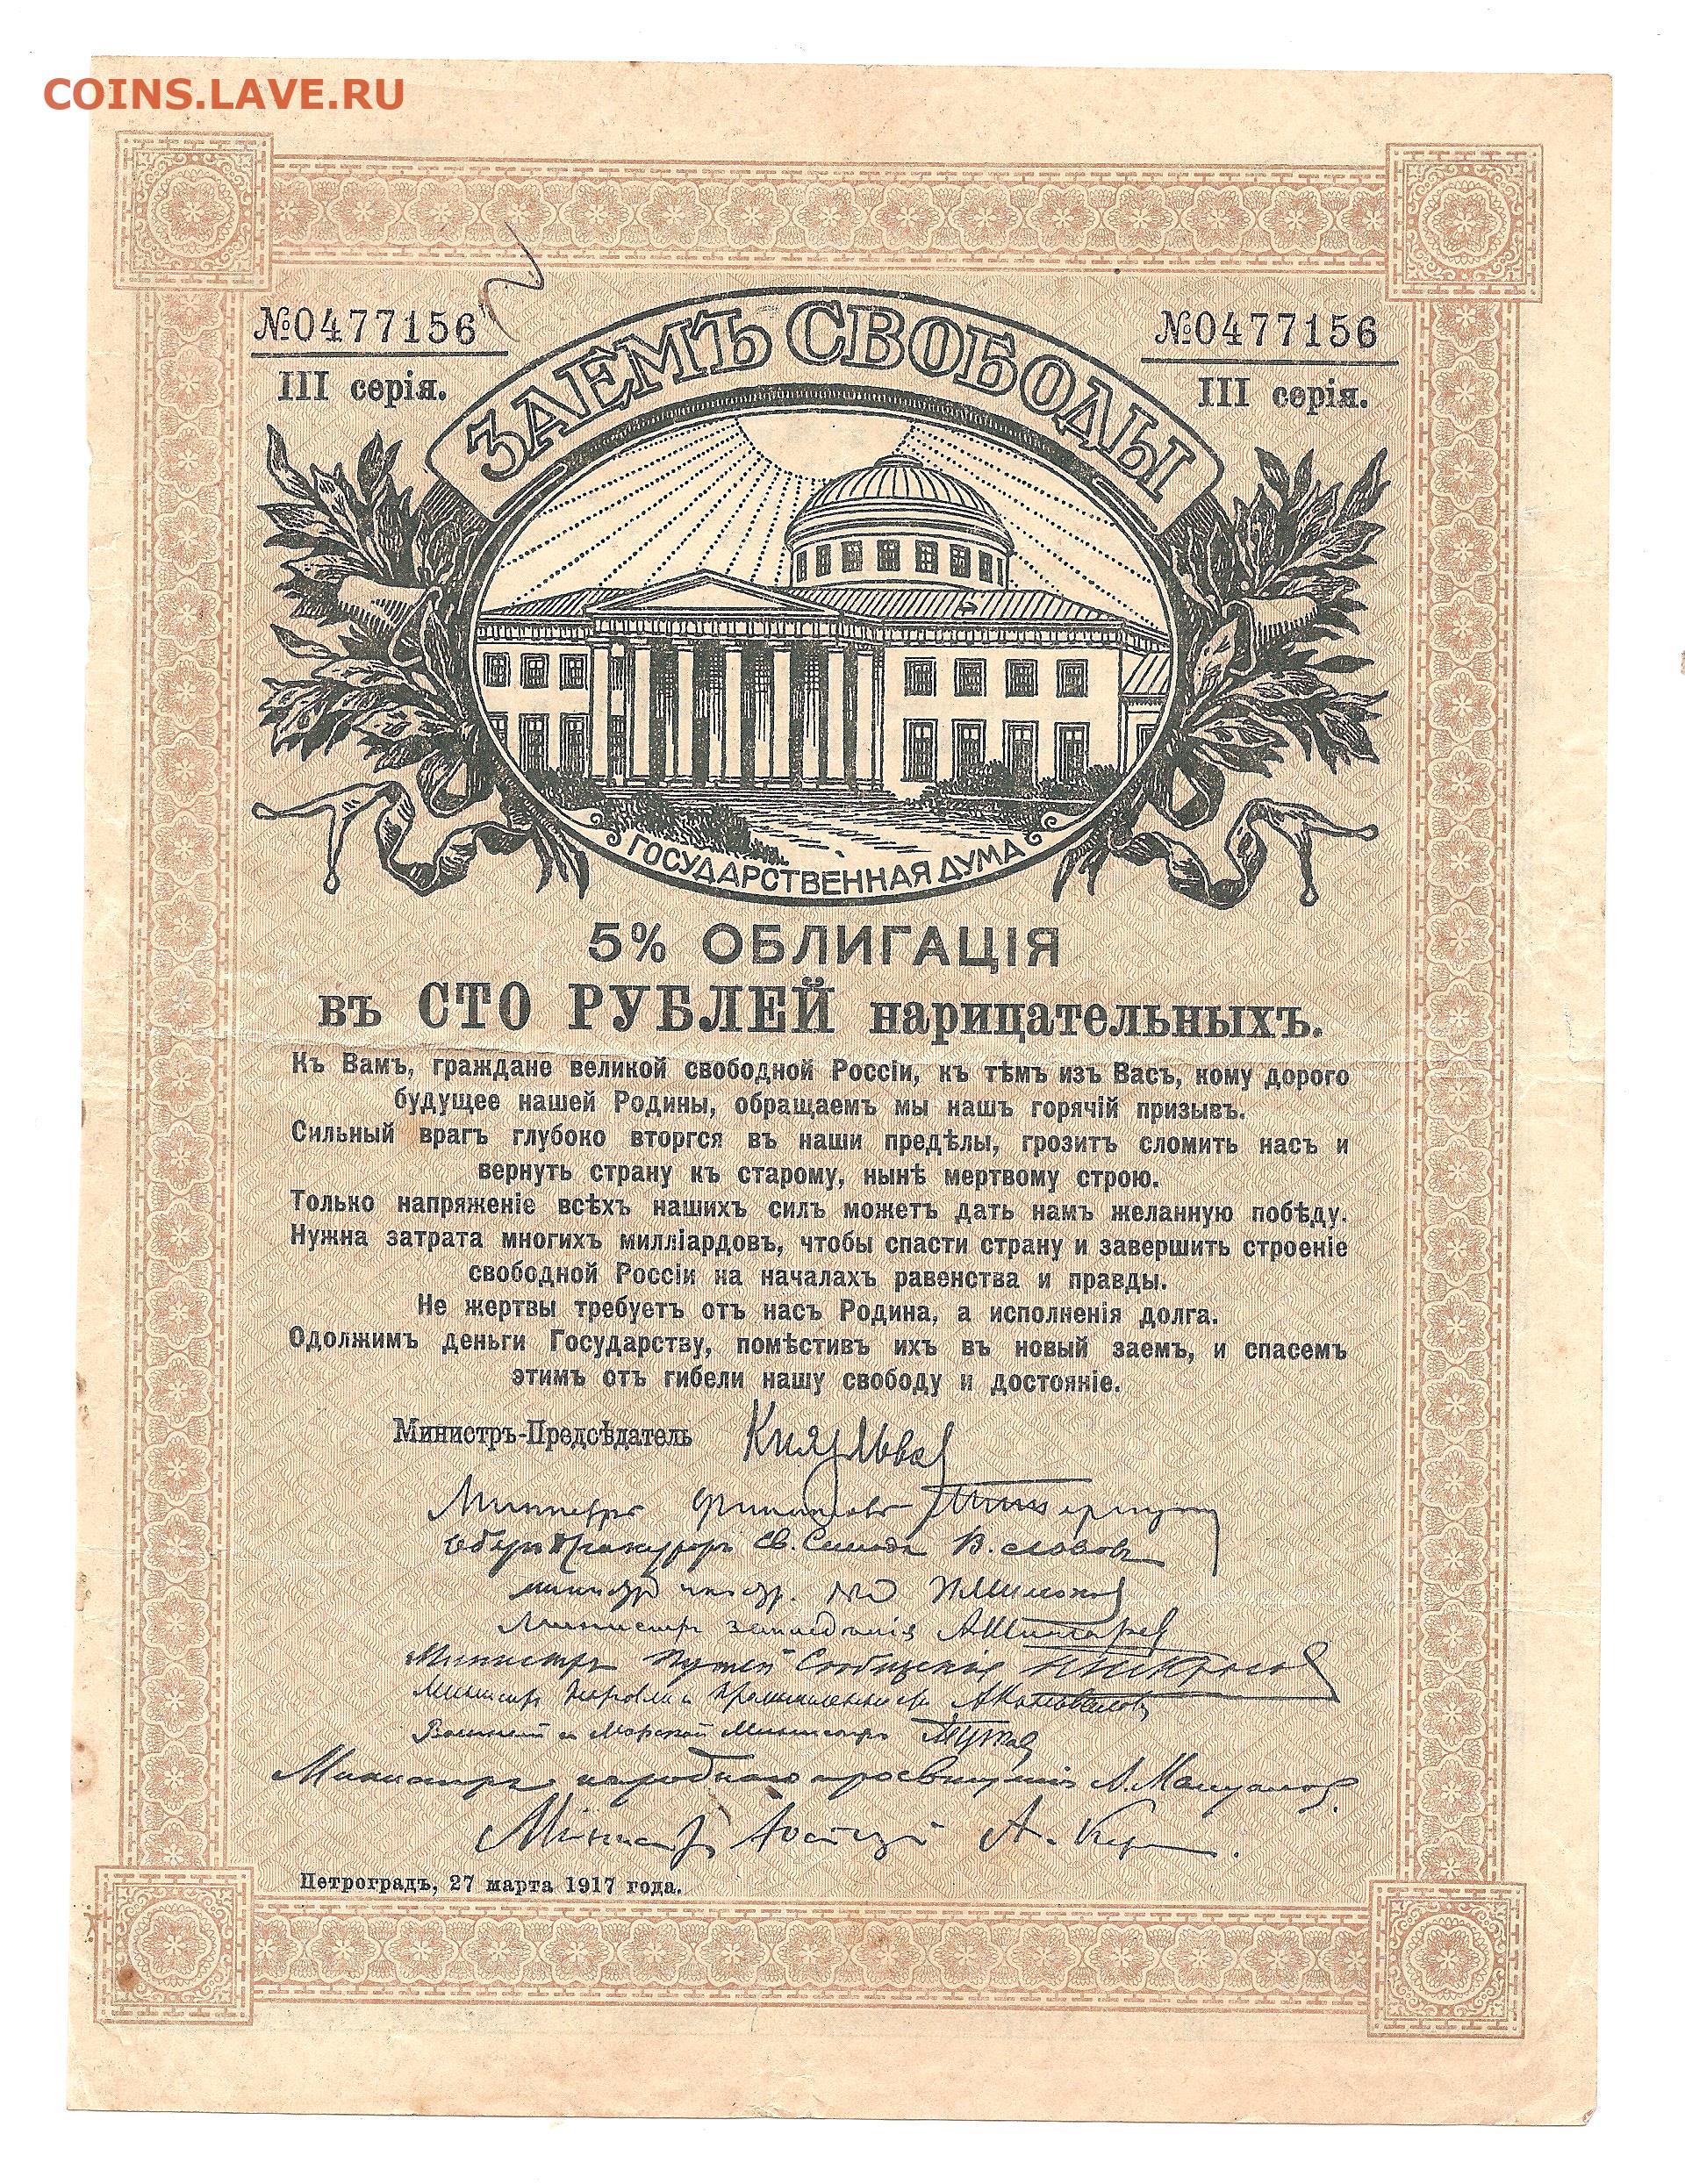 COINS.LAVE.RU
№0477156
№0477156
III серія.
III серія.
ЗАЕМЪ СВОБОДЫ
ГОСУДАРСТВЕННАЯ ДУМА
5% ОБЛИГАЦІЯ
въ СТО РУБЛЕЙ нарицательныхъ.
Къ Вамъ, граждане великой свободной Россіи, къ тѣмъ изъ Васъ, кому дорого
будущее нашей Родины, обращаемъ мы нашъ горячій призывъ.
Сильный врагъ глубоко вторгся въ наши предѣлы, грозитъ сломить насъ и
вернуть страну къ старому, нынѣ мертвому строю.
Только напряженіе всѣхъ нашихъ силъ можетъ дать намъ желанную побѣду.
Нужна затрата многихъ милліардовъ, чтобы спасти страну и завершить строеніе
свободной Россіи на началахъ равенства и правды.
Не жертвы требуетъ отъ насъ Родина, а исполненія долга.
Одолжимъ деньги Государству, помѣстивъ ихъ въ новый заемъ, и спасемъ
этимъ отъ гибели нашу свободу и достояніе.
Министръ-Предсѣдатель Князь Львов
Министръ финансовъ
Оберъ Прокуроръ Св. Синода В. Львовъ
Министръ П. Милюков
Министръ земледѣлія А. Шингарев
Министръ Путей Сообщенія Н. Некрасов
Министръ Торговли и Промышленности А. Коноваловъ
Военный и Морской Министръ Гучков
Министръ народнаго просвѣщенія А. Мануилов.
Министръ Юстиціи А. Кер
Петроградъ, 27 марта 1917 года.